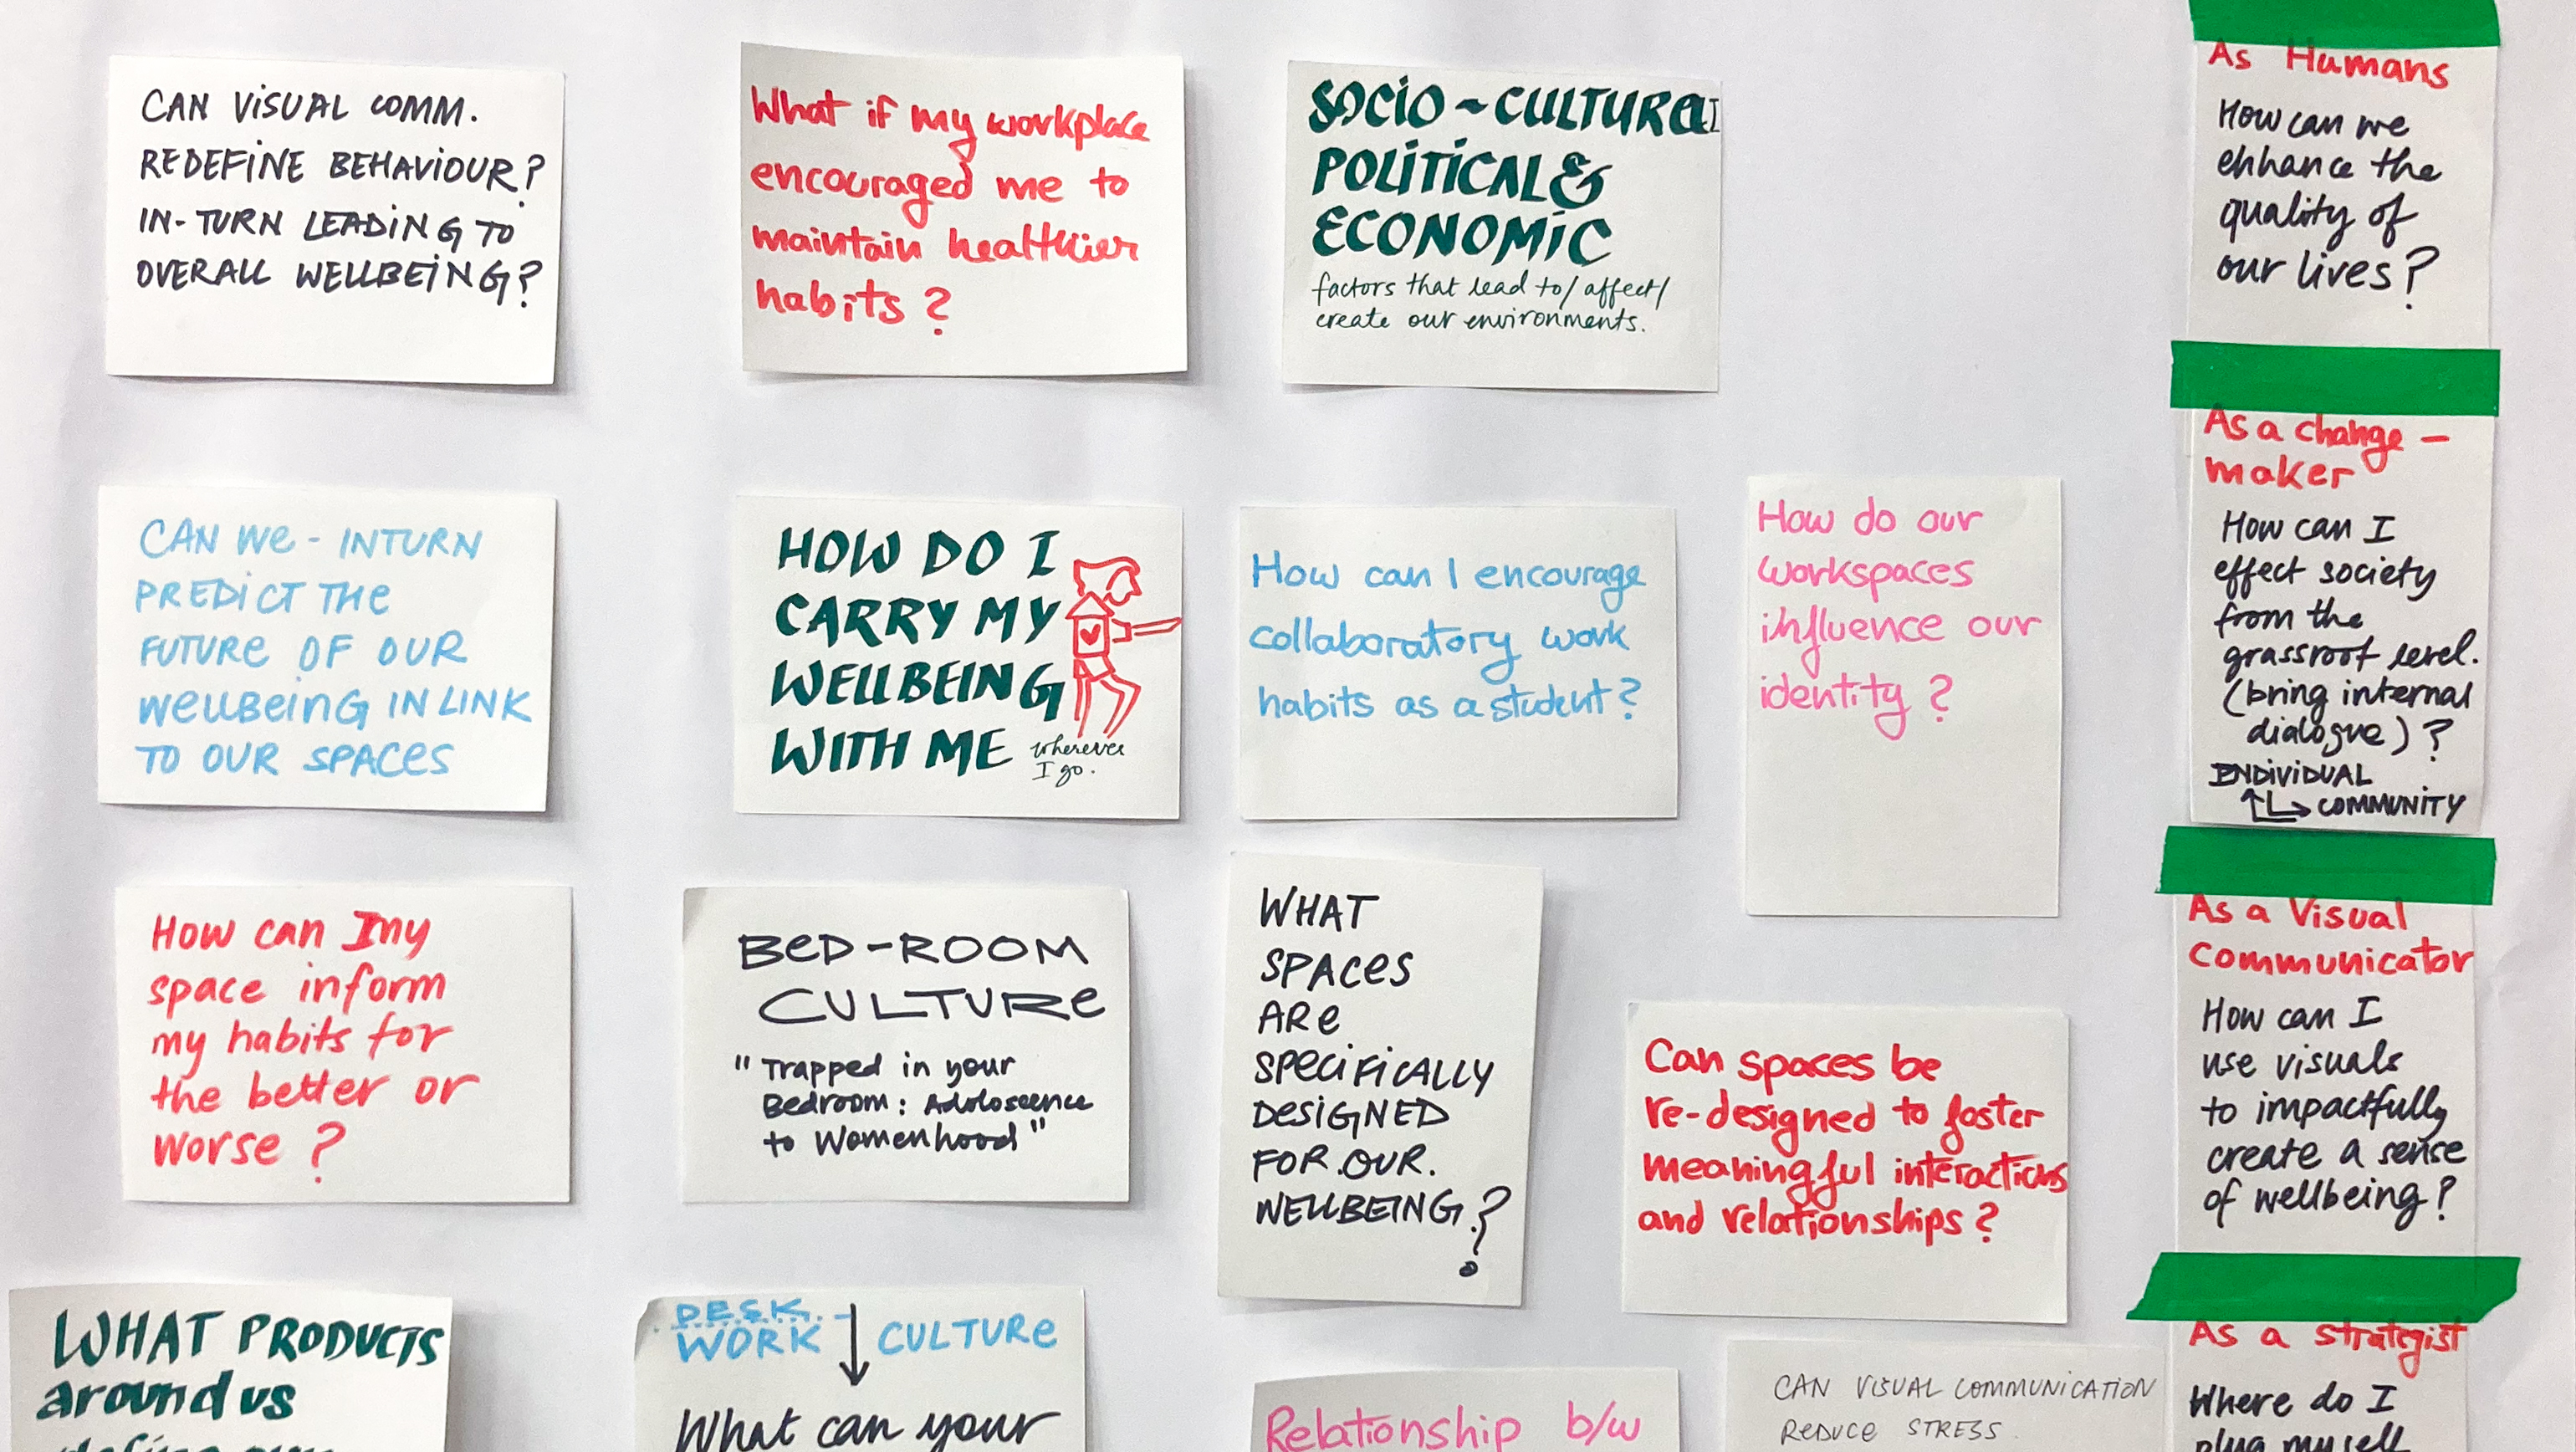 CAN VISUAL COMM.
REDEFINE BEHAVIOUR?
IN-TURN LEADING TO
OVERALL WELLBEING?
What if my workplace
encouraged me to
maintain healthier
habits?
SOCIO-CULTURAL
POLITICAL &
ECONOMIC
factors that lead to/affect/
create our environments.
As Humans
How can we
enhance the
quality of
our lives?
CAN WE - INTURN
PREDICT THE
FUTURE OF OUR
WELLBEING IN LINK
TO OUR SPACES
HOW DO I
CARRY MY
WELLBEING
WITH ME wherever
I go.
How can I encourage
collaboratory work
habits as a student?
How do our
workspaces
influence our
identity?
As a change-
maker
How can I
effect society
from the
grassroot level.
(bring internal
dialogue)?
INDIVIDUAL
COMMUNITY
How can my
space inform
my habits for
the better or
worse?
BED-ROOM
CULTURE
"Trapped in your
Bedroom: Adoloscence
to Womenhood"
WHAT
SPACES
ARE
SPECIFICALLY
DESIGNED
FOR.OUR.
WELLBEING?
Can spaces be
re-designed to foster
meaningful interactions
and relationships?
As a Visual
Communicator
How can I
use visuals
to impactfully
create a sense
of wellbeing?
WHAT PRODUCTS
around us
D.E.S.K.
WORK CULTURE
What can your
Relationship b/w
CAN VISUAL COMMUNICATION
REDUCE STRESS.
As a strategist
Where do I
plug myself